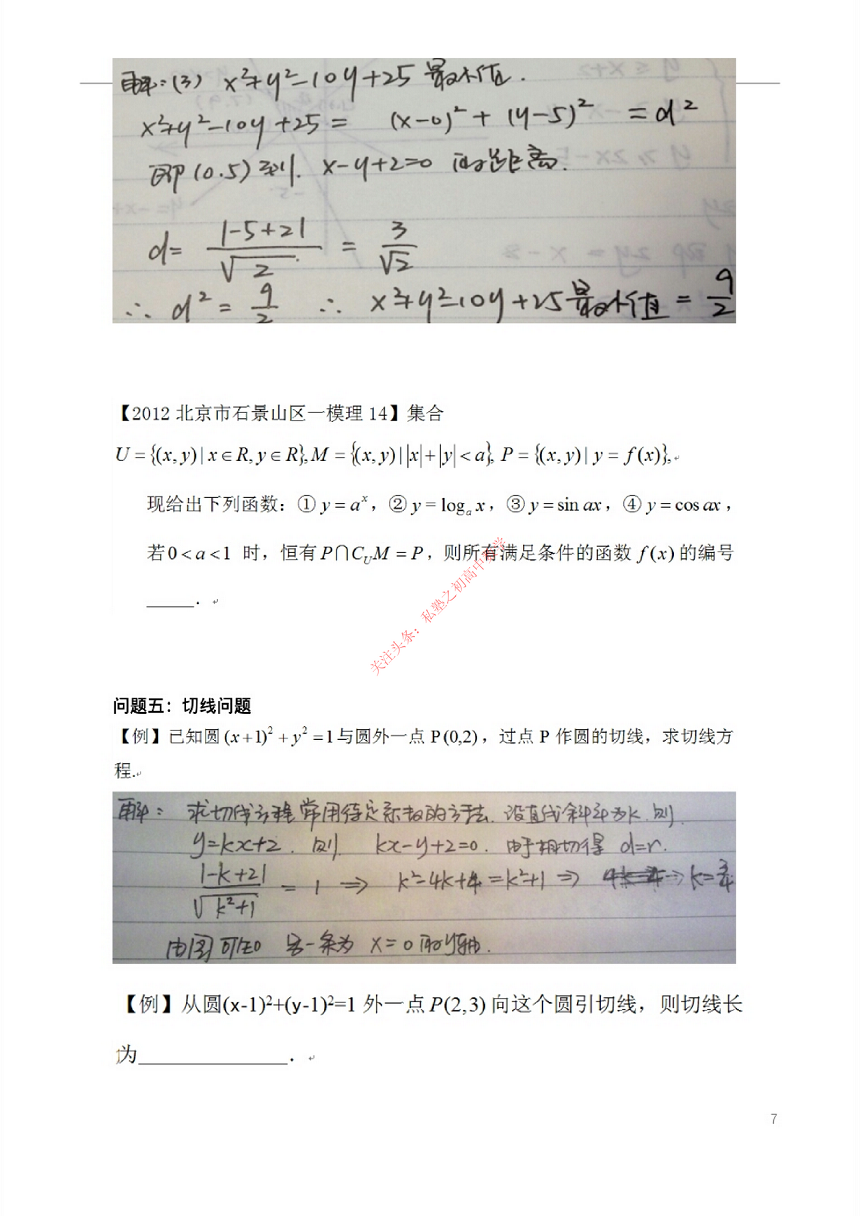 解：(3) x²+y²-10y+25 最小值.
x²+y²-10y+25 = (x-0)²+(y-5)² = d²
即(0.5)到. x-y+2=0 的距离.
d= |-5+2|/√2 = 3/√2
∴ d²= 9/2 ∴ x²+y²-10y+25最小值 = 9/2
【2012 北京市石景山区一模理 14】集合
U = {(x, y) | x∈R, y∈R}, M = {(x, y) | |x|+|y|<a}, P = {(x, y) | y = f(x)},
现给出下列函数：① y = aˣ，② y = logₐ x，③ y = sin ax，④ y = cos ax，
若 0<a<1 时，恒有 P∩C_U M = P，则所有满足条件的函数 f(x) 的编号
_____．
关注头条：私塾之初高中数学
问题五：切线问题
【例】已知圆 (x+1)²+y²=1 与圆外一点 P(0,2)，过点 P 作圆的切线，求切线方
程.
解： 求切线方程常用待定系数的方法. 设直线斜率为k. 则
y=kx+2. 则 kx-y+2=0. 由于相切得 d=r.
|-k+2|/√k²+1 = 1 ⇒ k²-4k+4=k²+1 ⇒ ⇒k=3/4
由图可知 另一条为 x=0 的y轴.
【例】从圆(x-1)²+(y-1)²=1 外一点 P(2,3) 向这个圆引切线，则切线长
为______________．
7